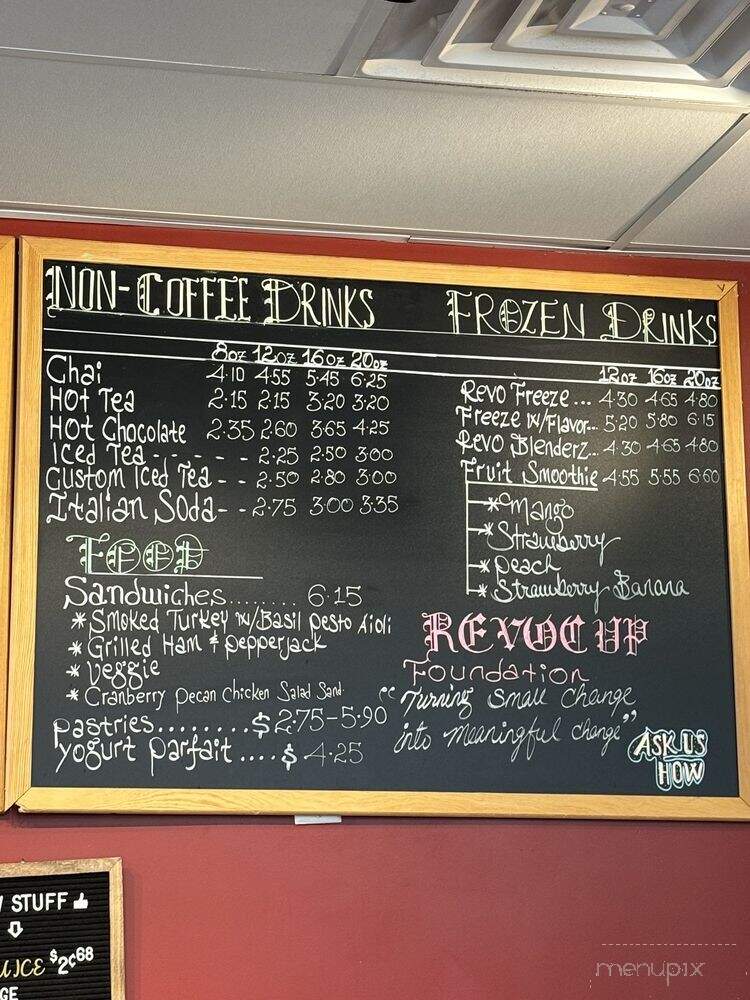 NON-COFFEE DRINKS
8oz 12oz 16oz 20oz
Chai 4.10 4.55 5.45 6.25
Hot Tea 2.15 2.15 3.20 3.20
Hot Chocolate 2.35 2.60 3.65 4.25
Iced Tea - - - - - - 2.25 2.50 3.00
Custom Iced Tea - - 2.50 2.80 3.00
Italian Soda - - 2.75 3.00 3.35
FOOD
Sandwiches........ 6.15
* Smoked Turkey w/Basil Pesto Aioli
* Grilled Ham & Pepperjack
* Veggie
* Cranberry Pecan Chicken Salad Sand.
Pastries........ $2.75-5.90
Yogurt Parfait .... $ 4.25
FROZEN DRINKS
12oz 16oz 20oz
Revo Freeze... 4.30 4.65 4.80
Freeze w/Flavor... 5.20 5.80 6.15
Revo Blenderz... 4.30 4.65 4.80
Fruit Smoothie 4.55 5.55 6.60
* Mango
* Strawberry
* Peach
* Strawberry Banana
REVOCUP
Foundation
"Turning small change
into meaningful change"
ASK US
HOW
STUFF
$2.68
menupix